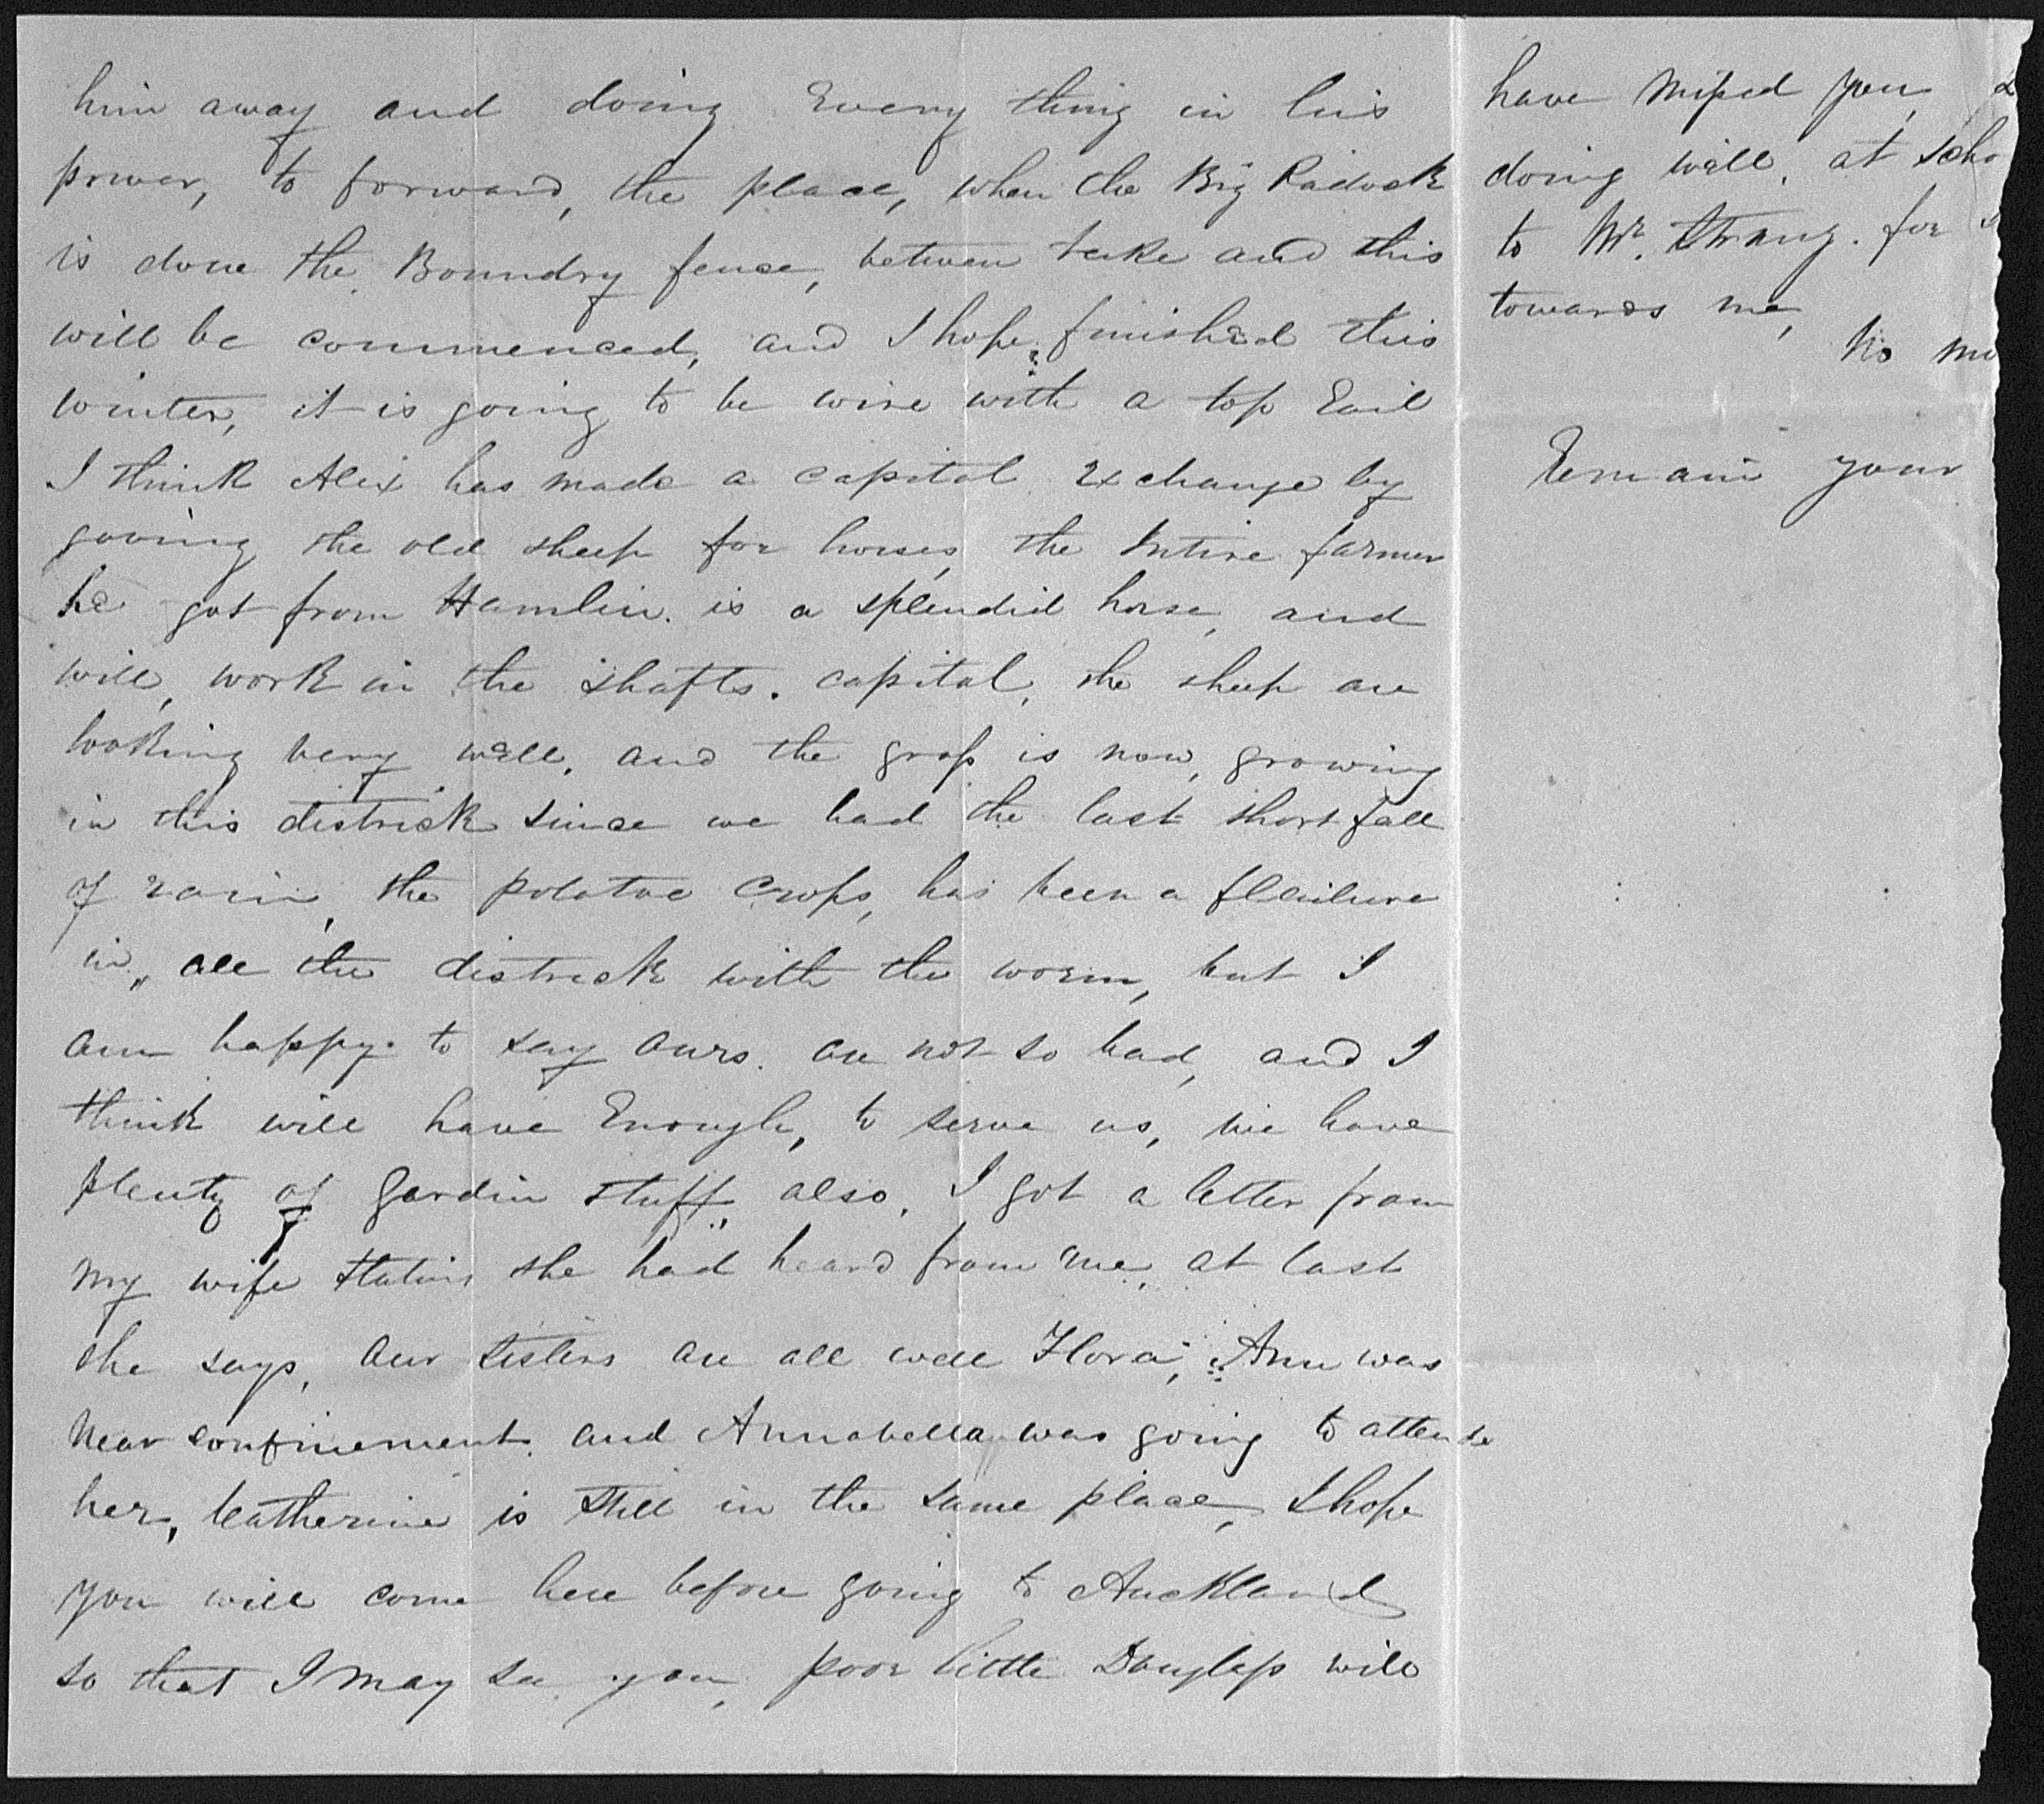 him away and doing Every thing in his
power, to forward, the place, when the Big Padock
is done the Boundry fence, between Teke and this
will be commenced, and I hope finished this
winter, it is going to be wire with a top Rail
I think Alex has made a capital Exchange by
giving the old sheep for horses, the Intire farmer
he got from Hamlin. is a splendid horse, and
will, work in the shafts. capital, the sheep are
looking very well, and the grass is now, growing
in this districk since we had the last short fall
of rain, the potatoe Crops, has been a flailure
in, all the districk with the worm, but I
am happy to say ours. are not so bad, and I
think will have Enough, to serve us, we have
plenty of gardin stuff,, also, I got a letter from
my wife stating she had heard from me, at last
she says, our sisters are all well Flora, Ann was
near confinement. and Annabella was going to attende
her, Catherine is still in the same place, I hope
you will come here before going to Auckland
so that I may see you, poor little Douglass will
have missed you,
doing well, at scho
to Mr. Strang. for
towards me,
No mo
Remain your